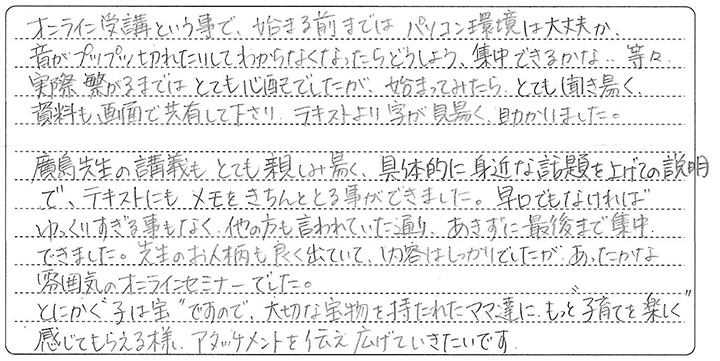 オンライン受講という事で、始まる前までは パソコン環境は大丈夫か、
音がプップツ切れたりしてわからなくなったらどうしよう、集中できるかな‥ 等々
実際 繋がるまでは とても心配でしたが、始まってみたら、とても聞き易く、
資料も、画面で共有して下さり、テキストより字が見易く、助かりました。
廣島先生の講義も とても親しみ易く、具体的に身近な話題を上げての説明
で、テキストにも メモをきちんととる事ができました。早口でもなければ
ゆっくりすぎる事もなく、他の方も言われていた通り、あきずに最後まで集中
できました。先生のお人柄も良く出ていて、内容はしっかりでしたが、あったかな
雰囲気のオンラインセミナーでした。
とにかく“子は宝”ですので、大切な宝物を持たれたママ達に、もっと“子育てを楽しく”
感じてもらえる様、アタッケメントを伝え広げていきたいです